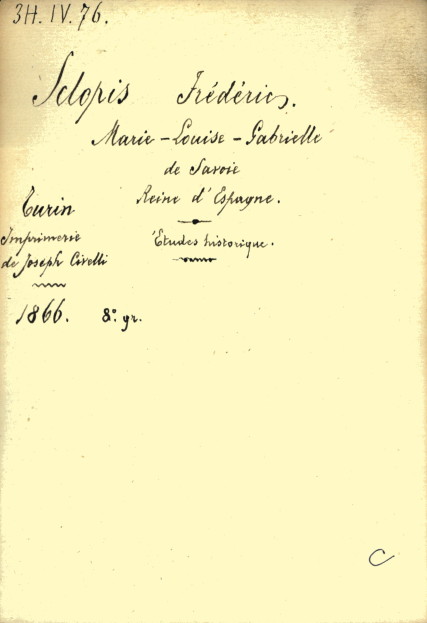 3H.IV.76.
Sclopis Frédéric.
Marie-Louise-Gabrielle
de Savoie
Reine d'Espagne.
Études historique.
Turin
Imprimerie
de Joseph Civelli
1866. 8.° gr.
C